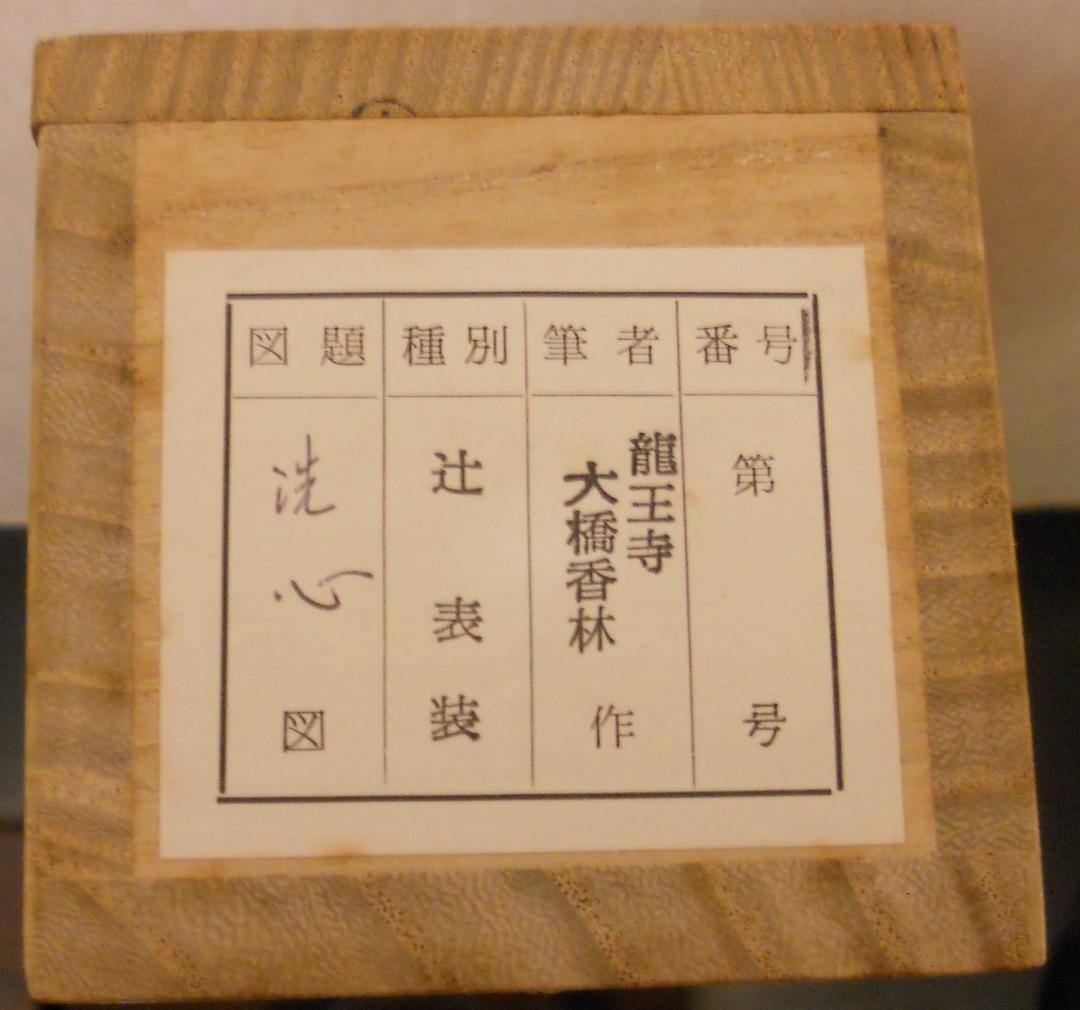 番号
第 号
筆者
龍王寺
大橋香林
作
種別
辻表装
図題
洗心
図